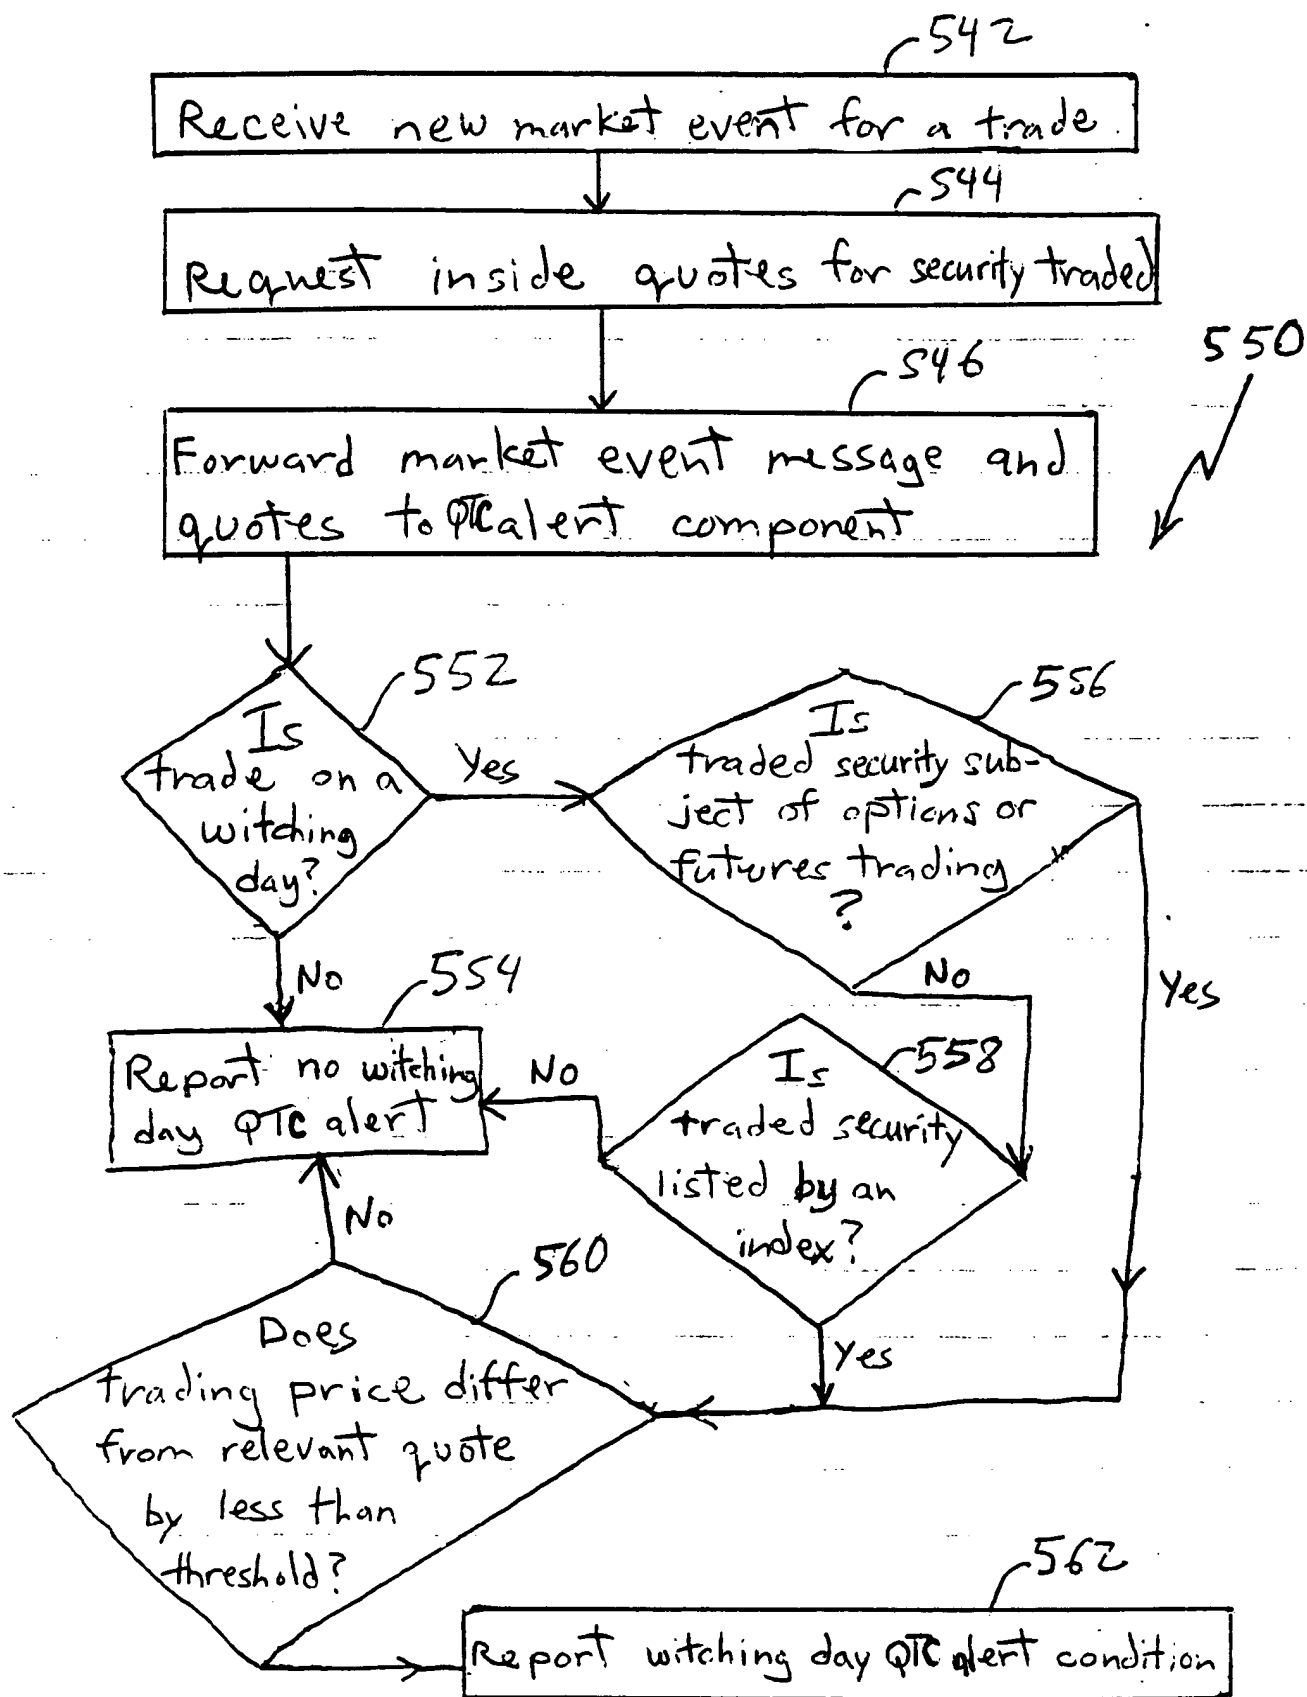 542
Receive new market event for a trade
544
Request inside quotes for security traded
550
546
Forward market event message and
quotes to QTC alert component
552
Is
trade on a
witching
day?
Yes
556
Is
traded security sub-
ject of options or
futures trading
?
No
554
No
Yes
Report no witching
day QTC alert
No
558
Is
traded security
listed by an
index?
No
560
Yes
Does
trading price differ
from relevant quote
by less than
threshold?
562
Report witching day QTC alert condition